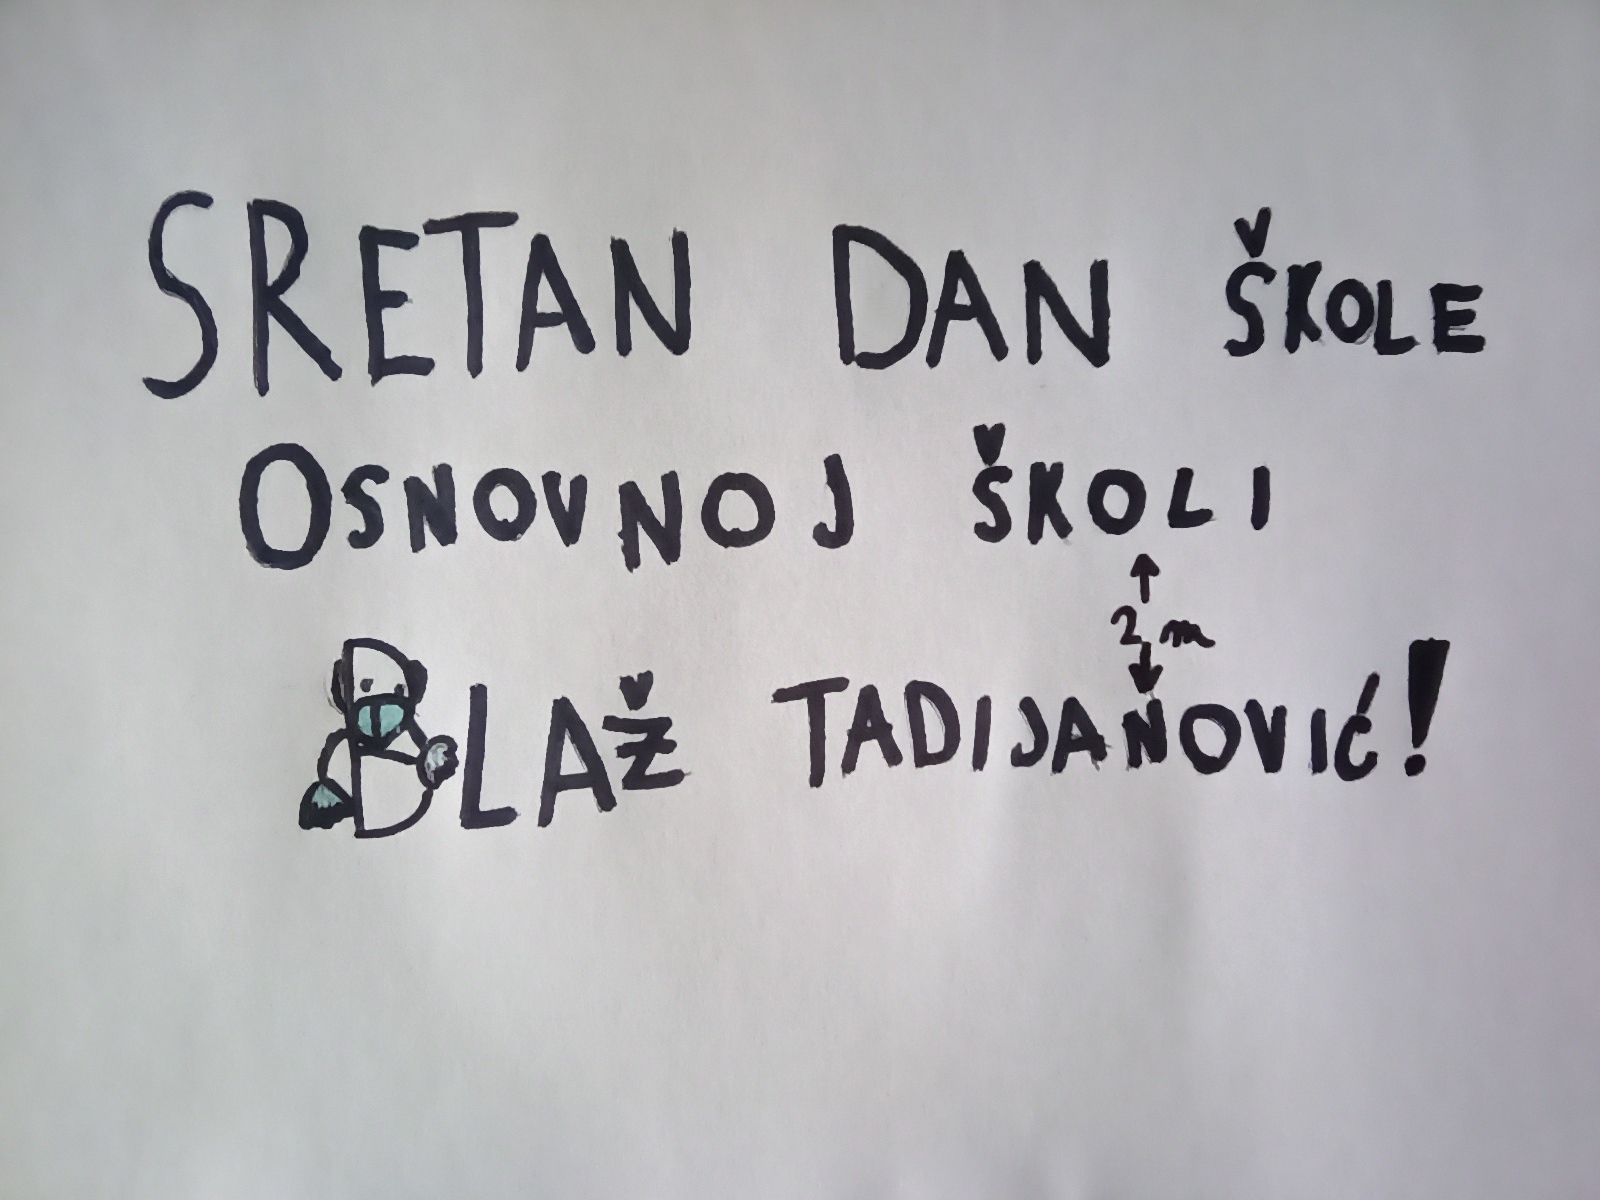 SRETAN DAN ŠKOLE
OSNOVNOJ ŠKOLI
2 m
BLAŽ TADIJANOVIĆ!